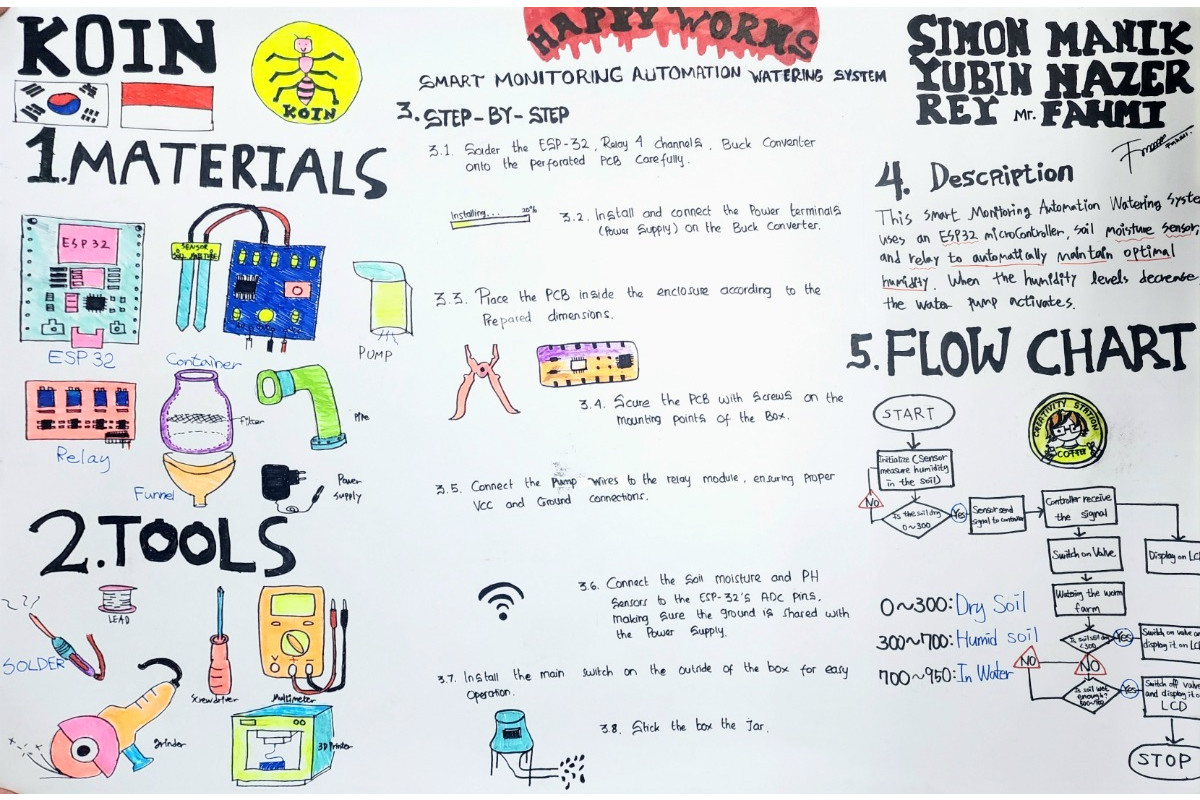 KOIN
KOIN
1. MATERIALS
ESP 32
SENSOR
SOIL MOISTURE
ESP 32
Container
PUMP
Relay
Filter
Pipe
Funnel
Power
Supply
2. TOOLS
LEAD
SOLDER
Screwdriver
Multimeter
Grinder
3D Printer
HAPPY WORMS
SMART MONITORING AUTOMATION WATERING SYSTEM
3. STEP-BY-STEP
3.1. Solder the ESP-32, Relay 4 channels, Buck Converter
onto the perforated PCB Carefully.
Installing... 20%
3.2. Install and connect the Power terminals
(Power Supply) on the Buck Converter.
3.3. Place the PCB inside the enclosure according to the
Prepared dimensions.
3.4. Scure the PCB with Screws on the
mounting points of the Box.
3.5. Connect the Pump wires to the relay module, ensuring proper
Vcc and Ground connections.
3.6. Connect the Soil moisture and PH
Sensors to the ESP-32's ADC Pins,
making sure the ground is shared with
the Power Supply.
3.7. Install the main switch on the outside of the box for easy
Operation.
3.8. Stick the box the Jar.
SIMON MANIK
YUBIN NAZER
REY Mr. FAHMI
4. Description
This Smart Monitoring Automation Watering Syste
uses an ESP32 microController, soil moisture sensor,
and relay to automatically maintain optimal
humidity. When the humidity levels decrease
the water pump activates.
5. FLOW CHART
CREATIVITY STATION
COFFEE
START
Initialize (Sensor
measure humidity
in the soil)
NO
Is the soil dry
0~300
Yes
Sensor send
signal to controller
Controller receive
the signal
Switch on Valve
Display on LC
Watering the worm
farm
Is soil dry
<300
Yes
Switch on valve an
display it on LC
NO
NO
Is soil wet
enough?
Yes
Switch off valve
and display it o
LCD
STOP
0~300: Dry Soil
300~700: Humid soil
700~950: In Water